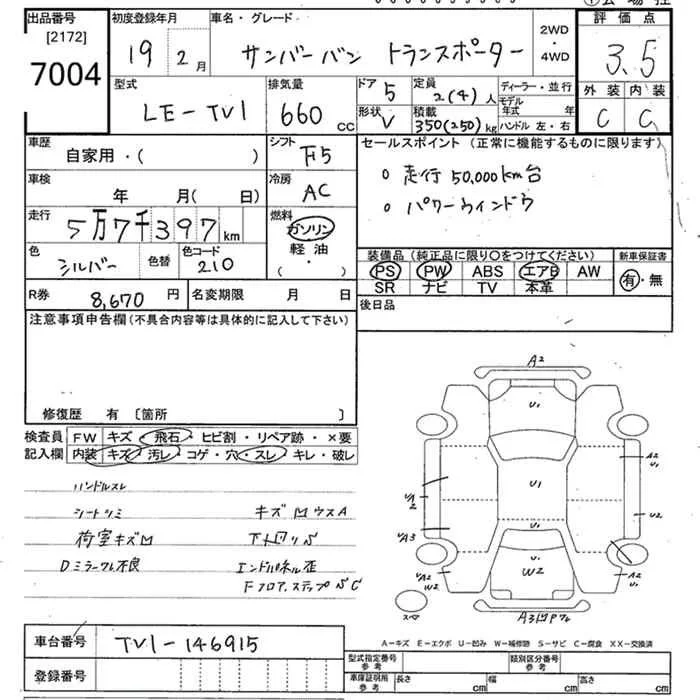 出品番号 初度登録年月 車名・グレード 評価点
[2172] 19 2月 サンバーバン トランスポーター 2WD・4WD 3.5
7004 型式 排気量 ドア 5 定員 2(4)人 ディーラー・並行 外装 内装
LE-TV1 660cc 形状 V 積載 350(250)kg モデル年式 年 C C
ハンドル 左・右
車歴 シフト セールスポイント(正常に機能するものに限ります)
自家用・( ) F5 ○走行50,000km台
車検 冷房 ○パワーウインドウ
年 月( 日) AC
走行 燃料
5万7千397km ガソリン
色 色替 色コード 軽油 装備品(純正品に限り○をつけてください) 新車保証書
シルバー 210 ・( ) PS PW ABS エアB AW 有・無
R券 8,670円 名変期限 月 日 SR ナビ TV 本革
注意事項申告欄(不具合内容等は具体的に記入して下さい) 後日品
修復歴 有 [箇所 ]
検査員 FW キズ・飛石・ヒビ割・リペア跡・×要
記入欄 内装 キズ・汚レ・コゲ・穴・スレ・キレ・破レ
ハンドルスレ
シートシミ キズMウスA
荷室キズM 下回りS
Dミラーワレ不良 エンドパネル歪
Fフロア.ステップSC
A2
U1
U1
U1
W2
A2 U1
U2
A2 U1
A3
A2
W2
スペ
車台番号 TV1-146915
A-キズ E-エクボ U-凹み W-補修跡 S-サビ C-腐食 XX-交換済
登録番号 型式指定番号 参考 類別区分番号 参考
車庫証明用 参考 長さ cm 幅 cm 高さ cm